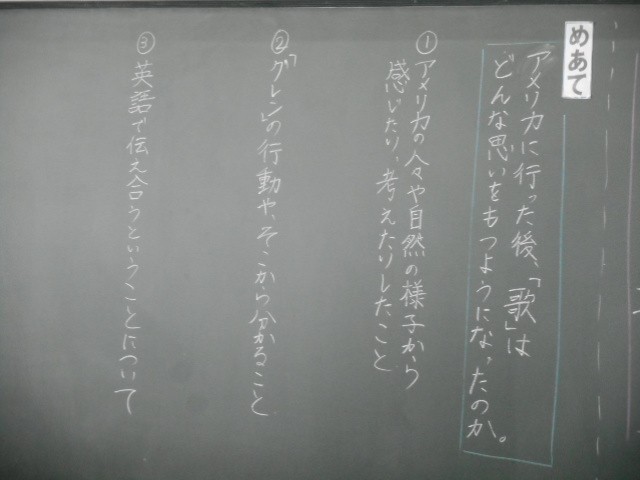 めあて
アメリカに行った後、「歌」は
どんな思いをもつようになったのか。
①アメリカの人々や自然の様子から
感じたり、考えたりしたこと
②「グレン」の行動や、そこから分かること
③英語で伝え合うということについて